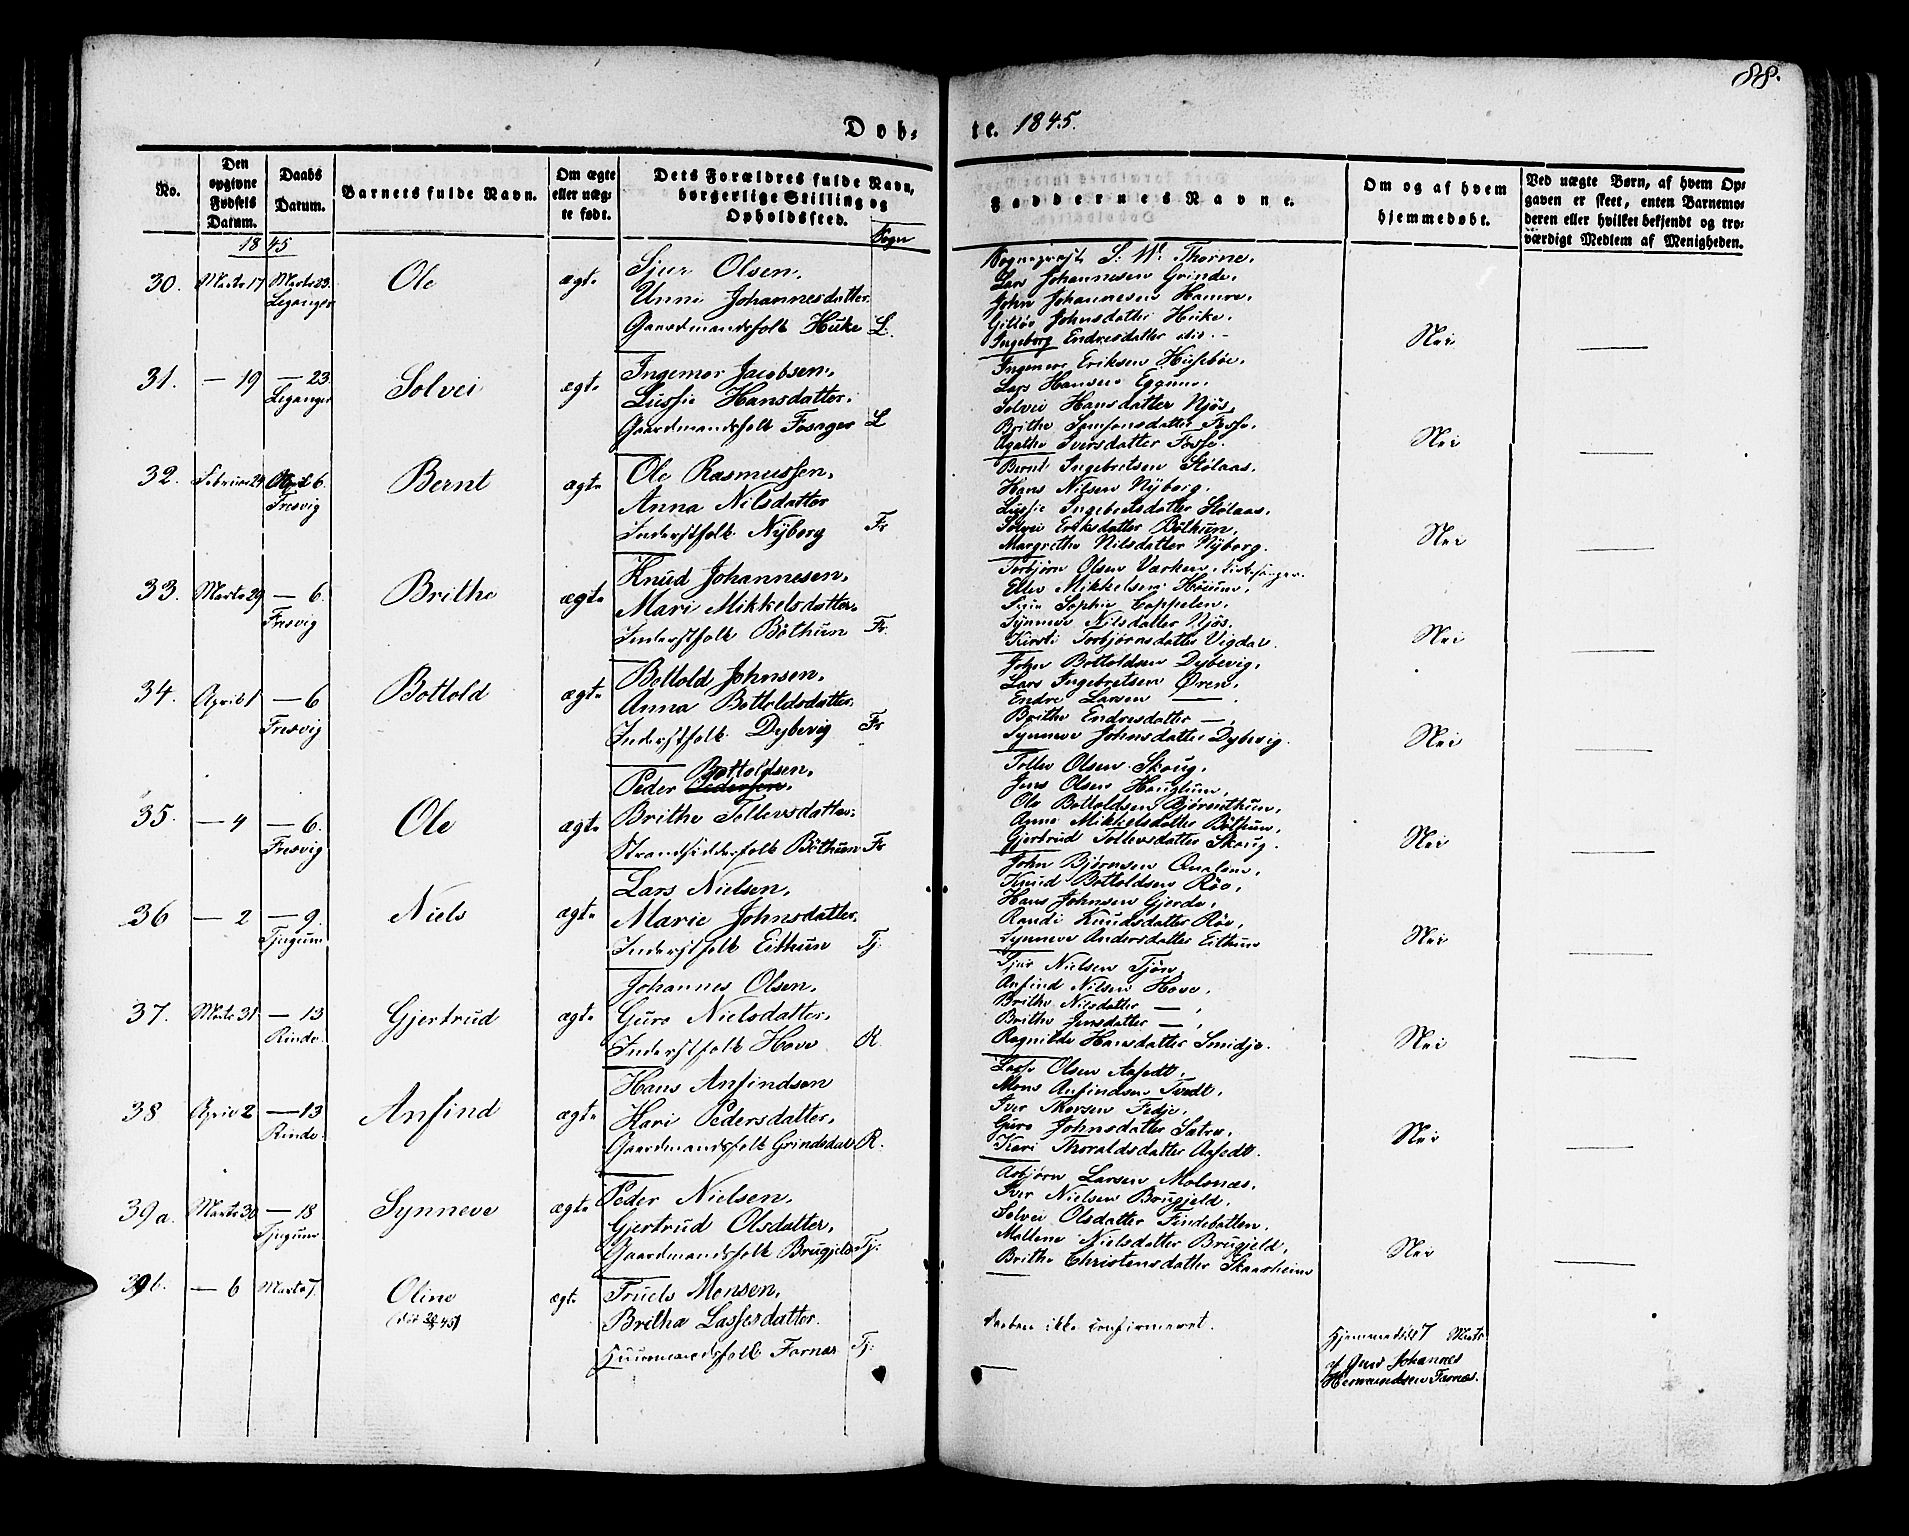 88.
Døb-
te. 1845.
No.
Den
opgivne
Fødsels
Datum.
Daabs
Datum.
Barnets fulde Navn.
Om ægte
eller uæg-
te født.
Dets Forældres fulde Navn,
borgerlige Stilling og
Opholdssted.
Sogn
Faddernes Navne.
Om og af hvem
hjemmedøbt.
Ved uægte Børn, af hvem Op-
gaven er skeet, enten Barnemo-
deren eller hvilket bekjendt og tro-
værdigt Medlem af Menigheden.
1845
30.
Marts 17
Marts 23.
Leganger
Ole
ægte
Sjur Olsen,
Unni Johannesdatter,
Gaardmandsfolk Huke L.
Sogneprest S. W. Thorne,
Lars Johannesen Grinde,
John Johannesen Hamre,
Johnsdatter Huke,
Ingeborg Endresdatter ibid. -
Nei
31.
- 19
- 23.
Leganger
Solvei
ægte
Ingemor Jacobsen,
Lussie Hansdatter,
Gaardmandsfolk Fosager L
Ingemor Eriksen Husebøe,
Lars Hansen Eggum,
Solvei Hansdatter Njøs,
Brithe Samsonsdatter Fosse,
Agathe Iversdatter Fosse.
Nei
32.
Februar 24
April 6.
Fresvig
Bernt
ægte
Ole Rasmussen,
Anna Nilsdatter
Inderstfolk Nyborg Fr
Bernt Ingebretsen Stølaas,
Hans Nilsen Nyborg,
Lussie Ingebretsdatter Stølaas,
Solvei Eriksdatter Bøthun,
Margrethe Nilsdatter Nyborg.
Nei
33.
Marts 29
- 6.
Fresvig
Brithe
ægte
Knud Johannesen,
Mari Mikkelsdatter,
Inderstfolk Bøthun Fr.
Torbjørn Olsen Værken, Kirkesanger.
Eller Mikkelsen Høium,
Sophie Coppelen,
Synneve Nilsdatter Njøs,
Kirsti Torbjørnsdatter Vigdal.
Nei
34.
April 1
- 6
Fresvig
Bottold
ægte
Bottold Johnsen,
Anna Bottoldsdatter,
Inderstfolk Dybevig Fr
John Bottoldsen Dybevig,
Lars Ingebretsen Øren,
Endre Larsen -
Brithe Endresdatter -,
Synneve Johnsdatter Dybevig.
Nei
35.
- 4
- 6.
Fresvig
Ole
ægte
Bottoldsen,
Peder Pedersen,
Brithe Tollevsdatter,
Strandsidderfolk Bøthun Fr
Tollev Olsen Skoug,
Jens Olsen Houglum,
Ole Bottoldsen Bjørnethun,
Anne Mikkelsdatter Bøthun,
Gjertrud Tollevsdatter Skoug.
Nei
36
- 2
- 9.
Tjugum
Niels
ægte
Lars Nielsen,
Marie Johnsdatter,
Inderstfolk Eithun Tj.
John Bjørnsen Qualem,
Knud Bottoldsen Røe,
Hans Johnsen Gjerde,
Randi Knudsdatter Røe,
Synneve Andersdatter Eithun
Nei
37.
Marts 31
- 13
Rinde.
Gjertrud
ægte
Johannes Olsen,
Guro Nielsdatter,
Inderstfolk Hove R.
Sjur Nielsen Tjørn,
Anfind Nielsen Hove,
Brithe Nilsdatter -,
Brithe Jensdatter -,
Ragnilde Hansdatter Smidje.
Nei
38
April 2
- 13
Rinde.
Anfind
ægte
Hans Anfindsen
Kari Pedersdatter,
Gaardmandsfolk Grindedal R.
Lasse Olsen Aafedt,
Mons Anfindsen Tvedt,
Iver Thorsen Fedje,
Guro Johnsdatter Sætre,
Kari Thoraldsdatter Aafedt.
Nei
39a.
Marts 30
- 18
Tjugum
Synneve
ægte
Peder Nielsen,
Gjertrud Olsdatter,
Gaardmandsfolk Brugjeld Tj.
Asbjørn Larsen Molsnæs,
Iver Nielsen Brugjeld,
Solvei Olsdatter Findebotten,
Maltene Nielsdatter Brugjeld,
Brithe Christensdatter Skaasheim
Nei
39b.
- 6
Marts 7.
Oline
ægte
Truels Monsen,
Britha Lassesdatter
Huusmandsfolk Farnæs Tj.
Daaben ikke confirmeret.
Hjemmedøbt 7 Marts
af Johannes
Hermundsen Farnæs.